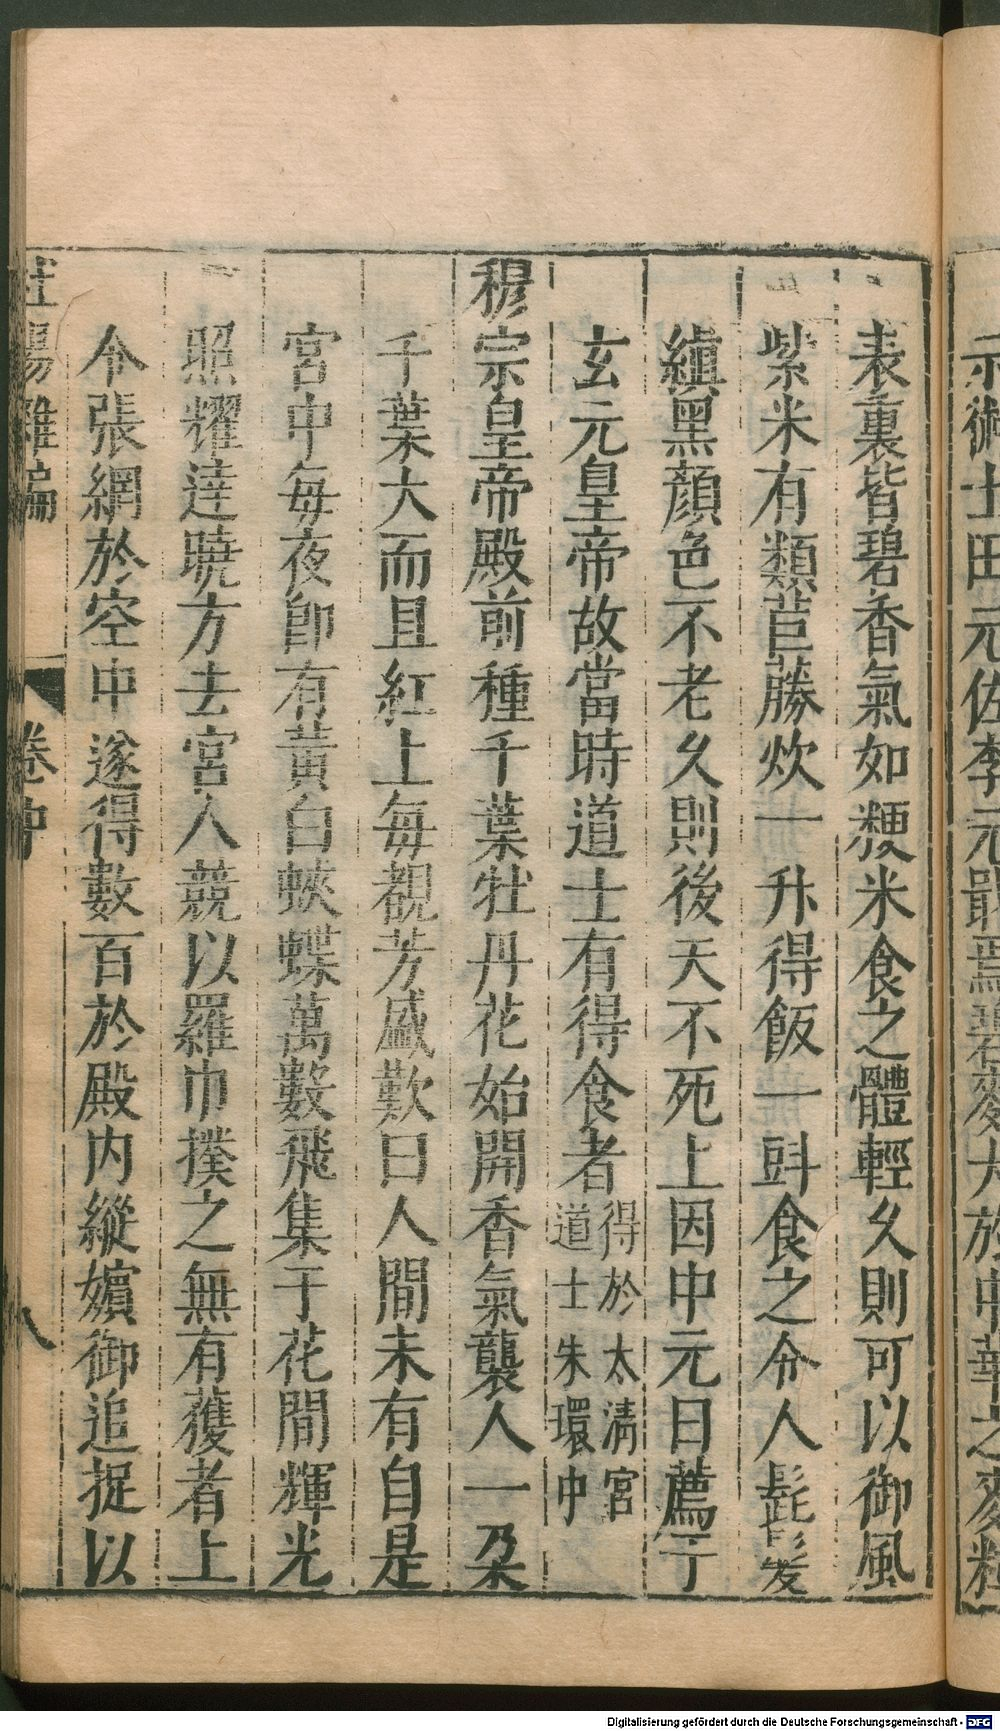 示術士田元佐李元戢焉碧麥大於中華之麥粒
表裏皆碧香氣如粳米食之體輕久則可以御風
紫米有類苣蕂炊一升得飯一㪷食之令人髭髮
縝黑顏色不老久則後天不死上因中元日薦于
玄元皇帝故當時道士有得食者得於太清宮道士朱環中
穆宗皇帝殿前種千葉牡丹花始開香氣襲人一朶
千葉大而且紅上每覩芳盛歎曰人間未有自是
宮中每夜即有黃白蛺蝶萬數飛集于花間輝光
照耀達曉方去宮人競以羅巾撲之無有獲者上
令張網於空中遂得數百於殿內縱嬪御追捉以
杜陽雜編 卷中 八
Digitalisierung gefördert durch die Deutsche Forschungsgemeinschaft - DFG